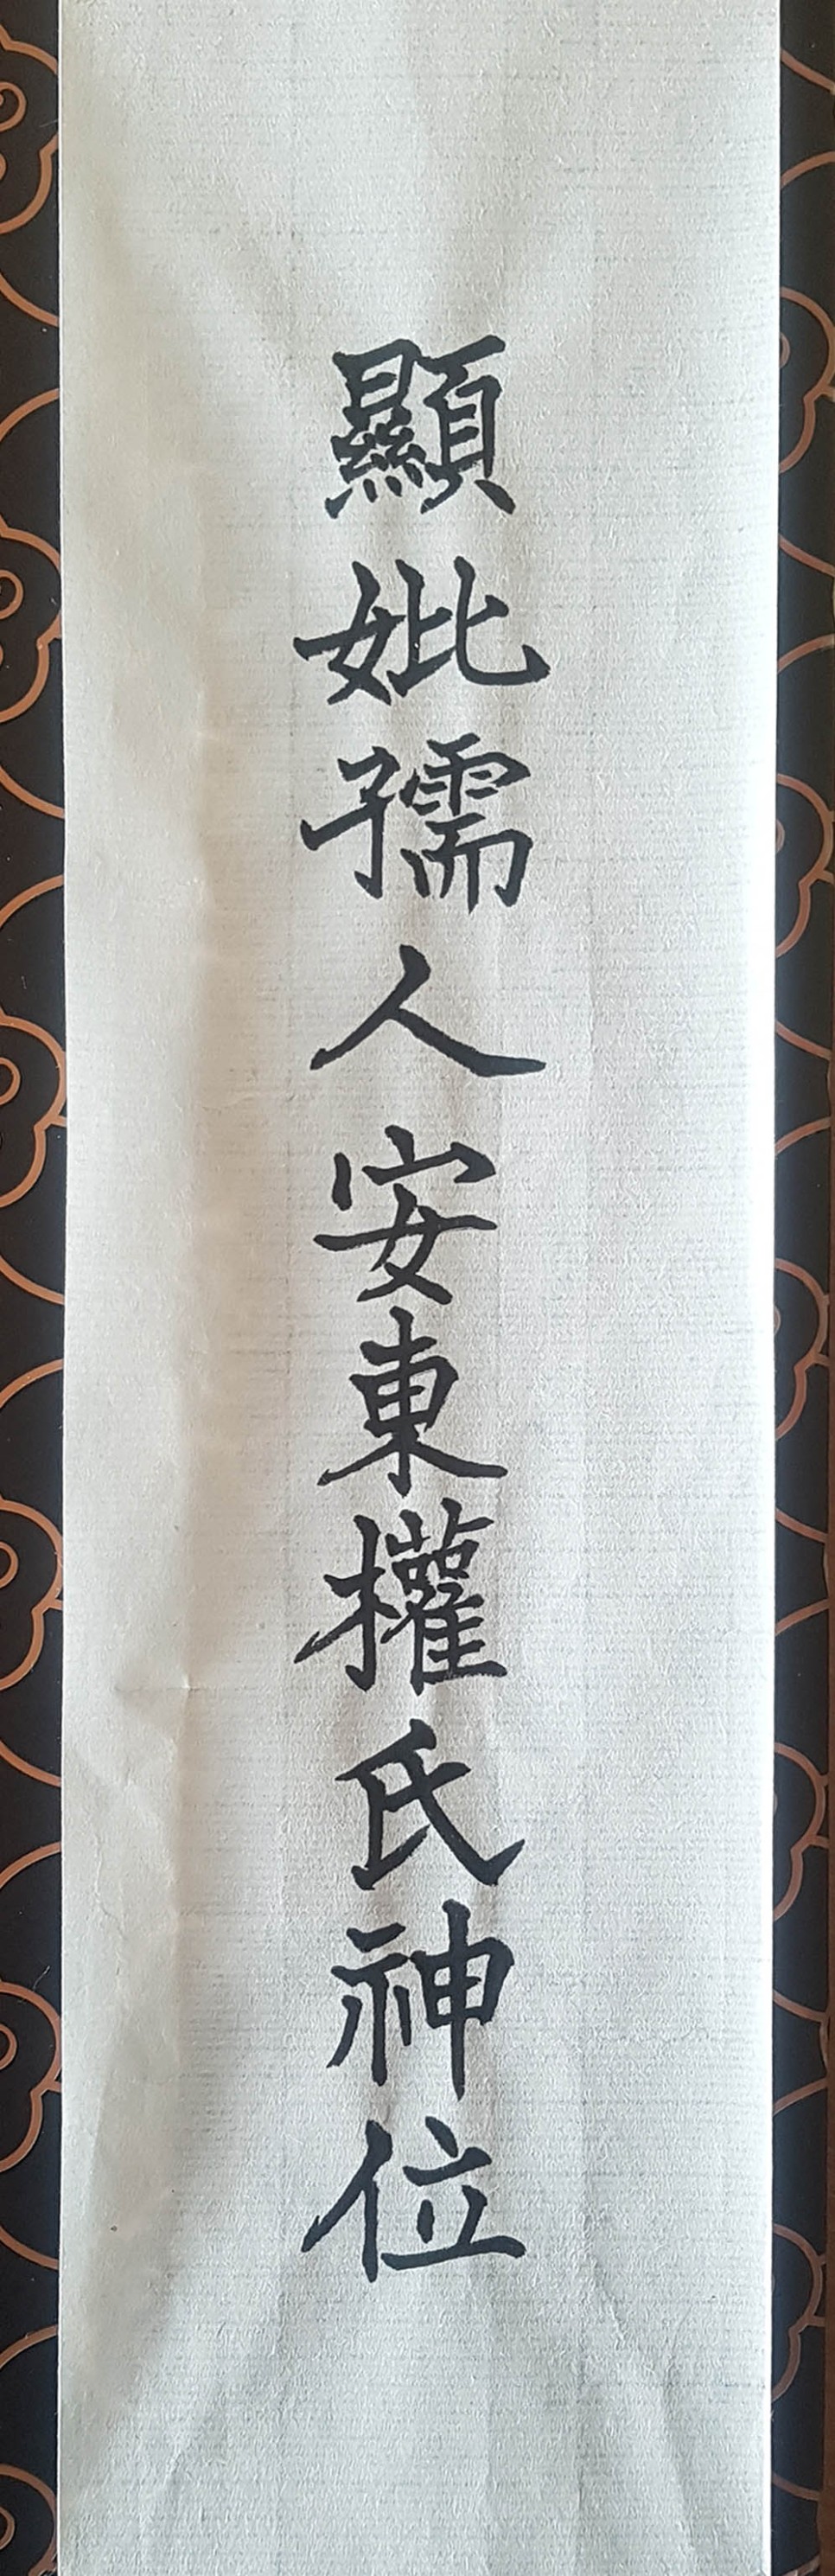 顯妣孺人安東權氏神位